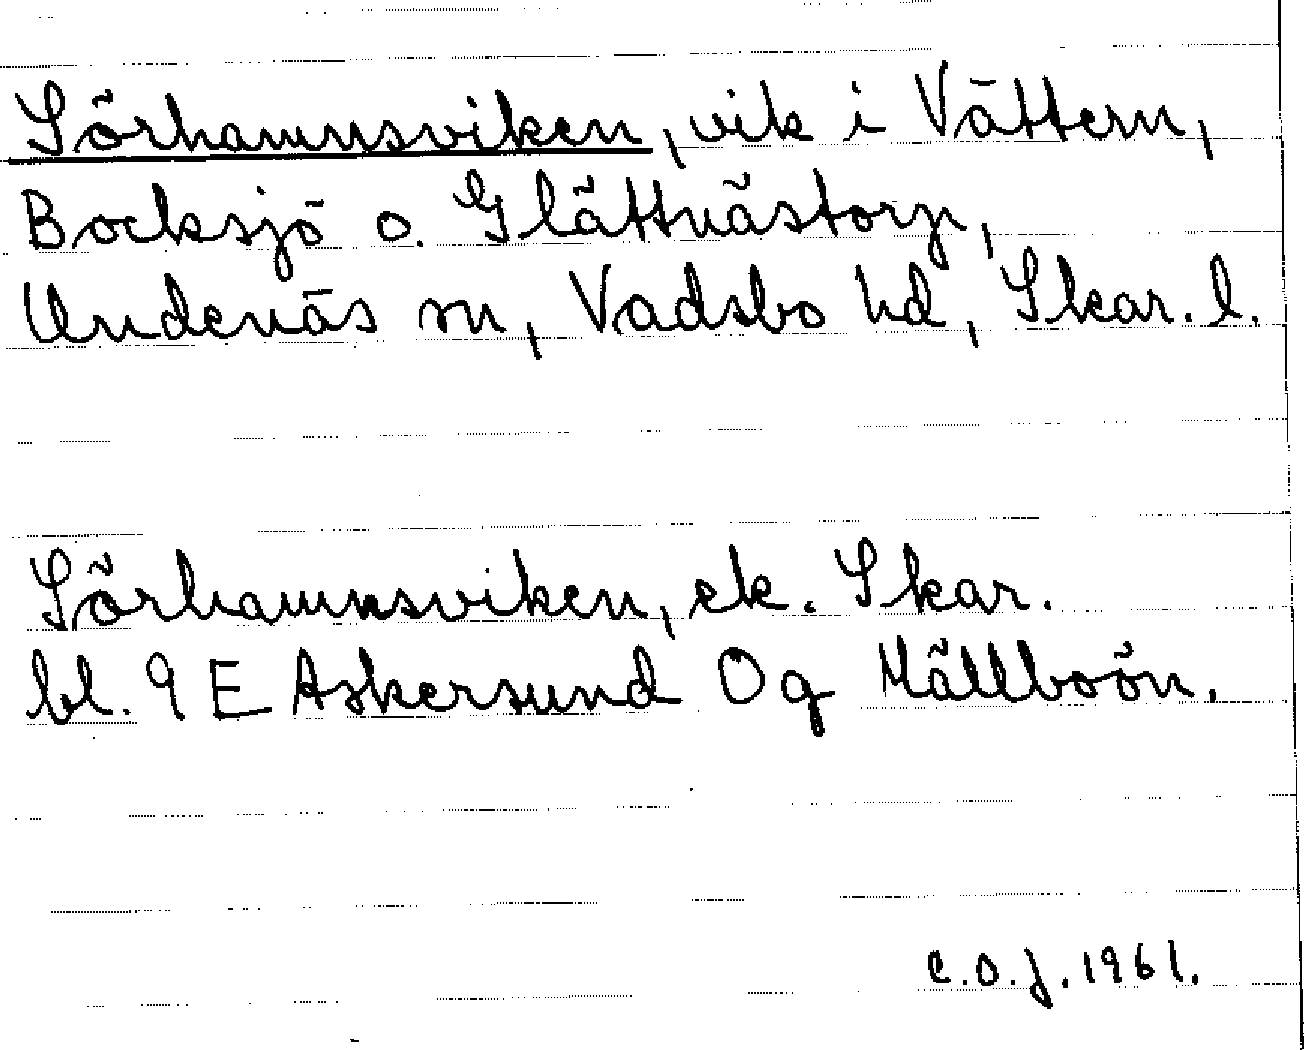 Sörhamnsviken, vik i Vättern,
Bocksjö o. Glättnästorp,
Undenäs sn, Vadsbo hd, Skar. l.
Sörhamnsviken, ek. Skar.
bl. 9 E Askersund Og Mällboön.
C.O.J. 1961.